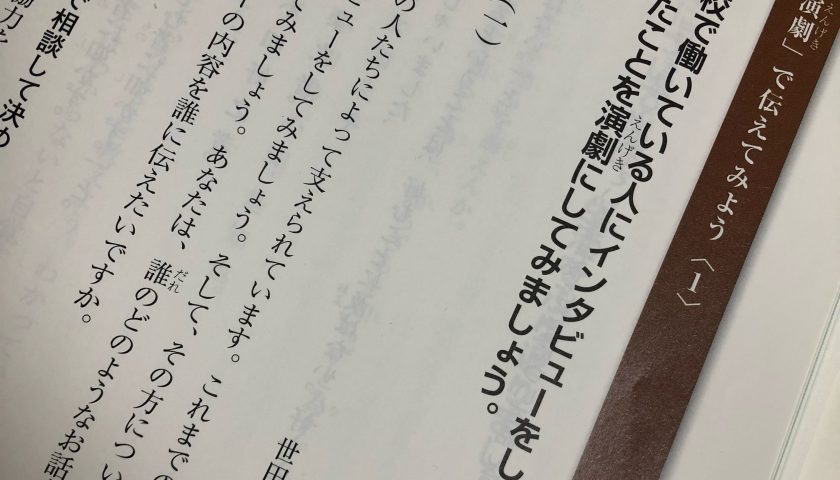 演劇」で伝えてみよう〈1〉
えんげき
校で働いている人にインタビューをし
たことを演劇にしてみましょう。
えんげき
(一)
世田
の人たちによって支えられています。これまでの
ビューをしてみましょう。そして、その方につい
の内容を誰に伝えたいですか。
てみましょう。あなたは、誰のどのようなお話
だれ
で相談して決め
協力を